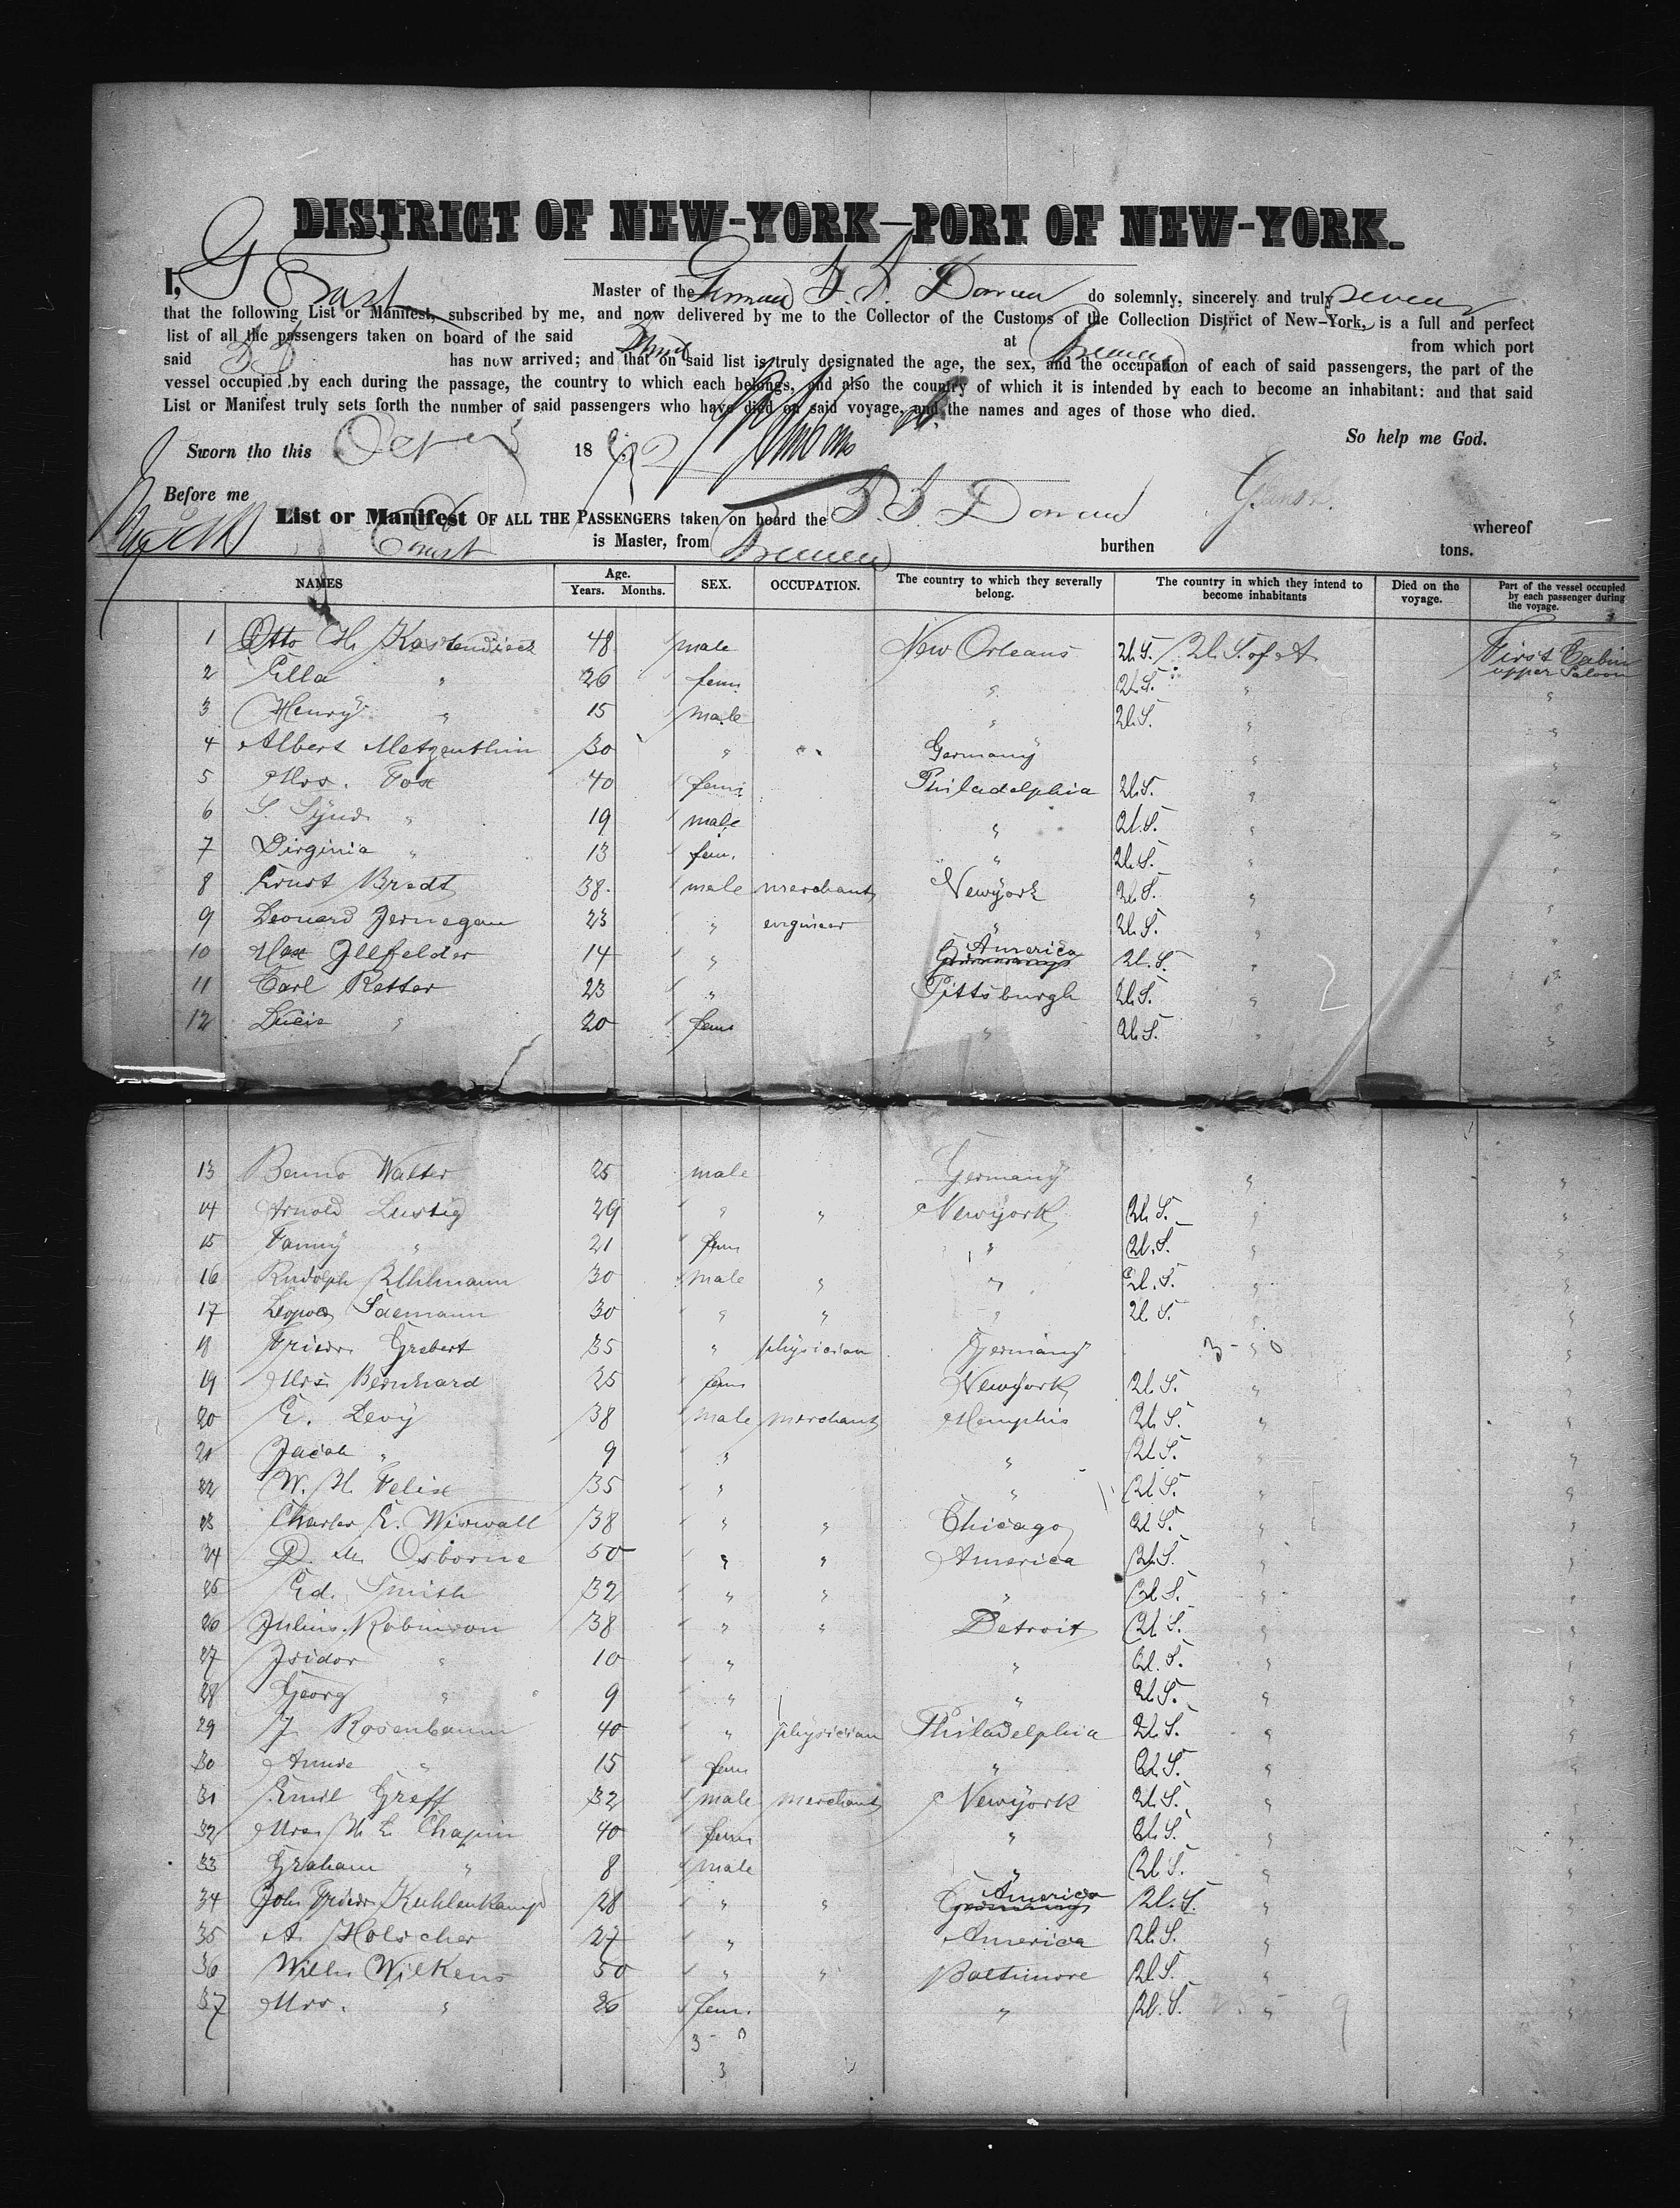 DISTRICT OF NEW-YORK—PORT OF NEW-YORK.
I, G Master of the German S. S. Donau do solemnly, sincerely and truly swear
that the following List or Manifest, subscribed by me, and now delivered by me to the Collector of the Customs of the Collection District of New-York, is a full and perfect
list of all the passengers taken on board of the said at Bremen from which port
said SS has now arrived; and that on said list is truly designated the age, the sex, and the occupation of each of said passengers, the part of the
vessel occupied by each during the passage, the country to which each belongs, and also the country of which it is intended by each to become an inhabitant: and that said
List or Manifest truly sets forth the number of said passengers who have died on said voyage, and the names and ages of those who died.
So help me God.
Sworn tho this Oct 18
Before me
List or Manifest OF ALL THE PASSENGERS taken on board the S. S. Donau whereof
is Master, from Bremen burthen tons.
NAMES Age. Years. Months. SEX. OCCUPATION. The country to which they severally belong. The country in which they intend to become inhabitants Died on the voyage. Part of the vessel occupied by each passenger during the voyage.
1 Otto H. Kastendieck 48 male New Orleans U.S. U.S. of A First Cabin upper Saloon
2 Ella " 26 fem. " U.S. " "
3 Henry " 15 male " U.S. " "
4 Albert Metzenthin 30 " " Germany " "
5 Mrs. Fox 40 fem. Philadelphia U.S. " "
6 S. " 19 male " U.S. " "
7 Virginia " 13 fem. " U.S. " "
8 Ernst Bredt 38 male merchant Newyork U.S. " "
9 Leonard Jernegan 23 " engineer " U.S. " "
10 Max Illfelder 14 " America Germany U.S. " "
11 Carl Retter 23 " Pittsburgh U.S. " "
12 Lucie " 20 fem " U.S. " "
13 Benno Walter 25 male Germany " "
14 Arnold Lustig 29 " " Newyork U.S. " "
15 Fanny " 21 fem " U.S. " "
16 Rudolph Uhlmann 30 male " " U.S. " "
17 Leopold Saemann 30 " " " U.S. " "
18 Friedr. Grebert 35 " physician Germany " "
19 Mrs. Bernhard 25 fem Newyork U.S. " "
20 E. Levy 38 male merchant Memphis U.S. " "
21 Jacob " 9 " " U.S. " "
22 W. H. Felix 35 " " U.S. " "
23 Charles E. Wiswall 38 " " Chicago U.S. " "
24 D. M. Osborne 50 " " America U.S. " "
25 Ed. Smith 32 " " " U.S. " "
26 Julius Robinson 38 " " Detroit U.S. " "
27 Isidor " 10 " " U.S. " "
28 Georg " 9 " " U.S. " "
29 J. Rosenbaum 40 " physician Philadelphia U.S. " "
30 Annie " 15 fem " U.S. " "
31 Emil Greff 32 male merchant Newyork U.S. " "
32 Mrs. H. E. Chapin 40 fem " U.S. " "
33 Graham " 8 male " U.S. " "
34 John Friedr. Kuhlenkamp 28 " " America Germany U.S. " "
35 A. Holscher 27 " America U.S. " "
36 Willm Wilkens 50 " " Baltimore U.S. " "
37 Mrs. " 26 fem. " U.S. " "